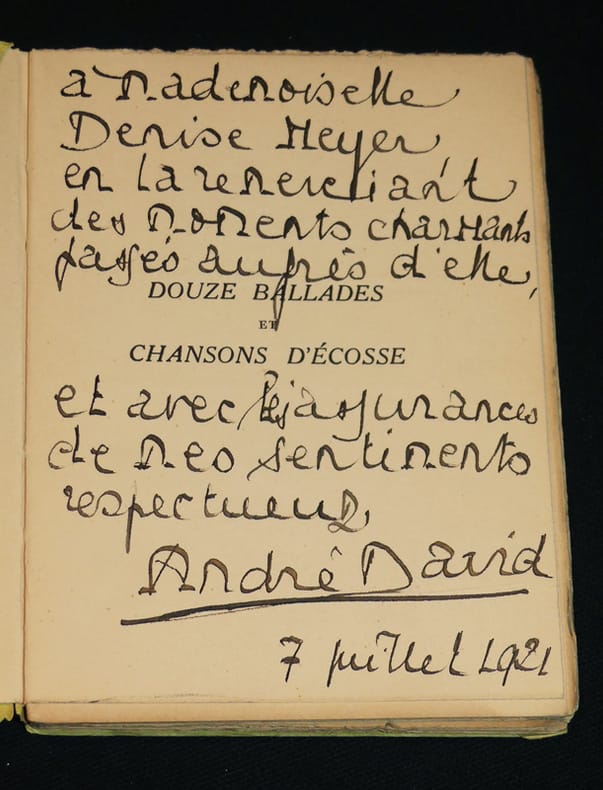 a Mademoiselle
Denise Meyer,
en la remerciant
des moments charmants
passés auprès d'elle,
DOUZE BALLADES
ET
CHANSONS D'ÉCOSSE
et avec les assurances
de mes sentiments
respectueux
André David
7 juillet 1921